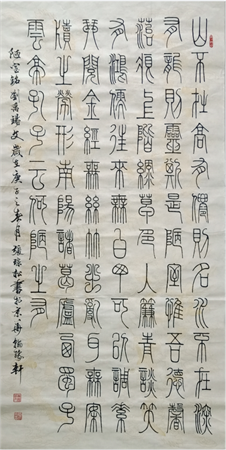 山不在高有僊則名水不在深
有龍則靈斯是陋室惟吾德馨
苔痕上階綠草色入簾青談笑
有鴻儒往來無白丁可以調素
琴閱金經無絲竹之亂耳無案
牘之勞形南陽諸葛廬西蜀子
雲亭孔子云何陋之有
陋室銘劉禹錫文歲在庚子之春月張松書於京華軒